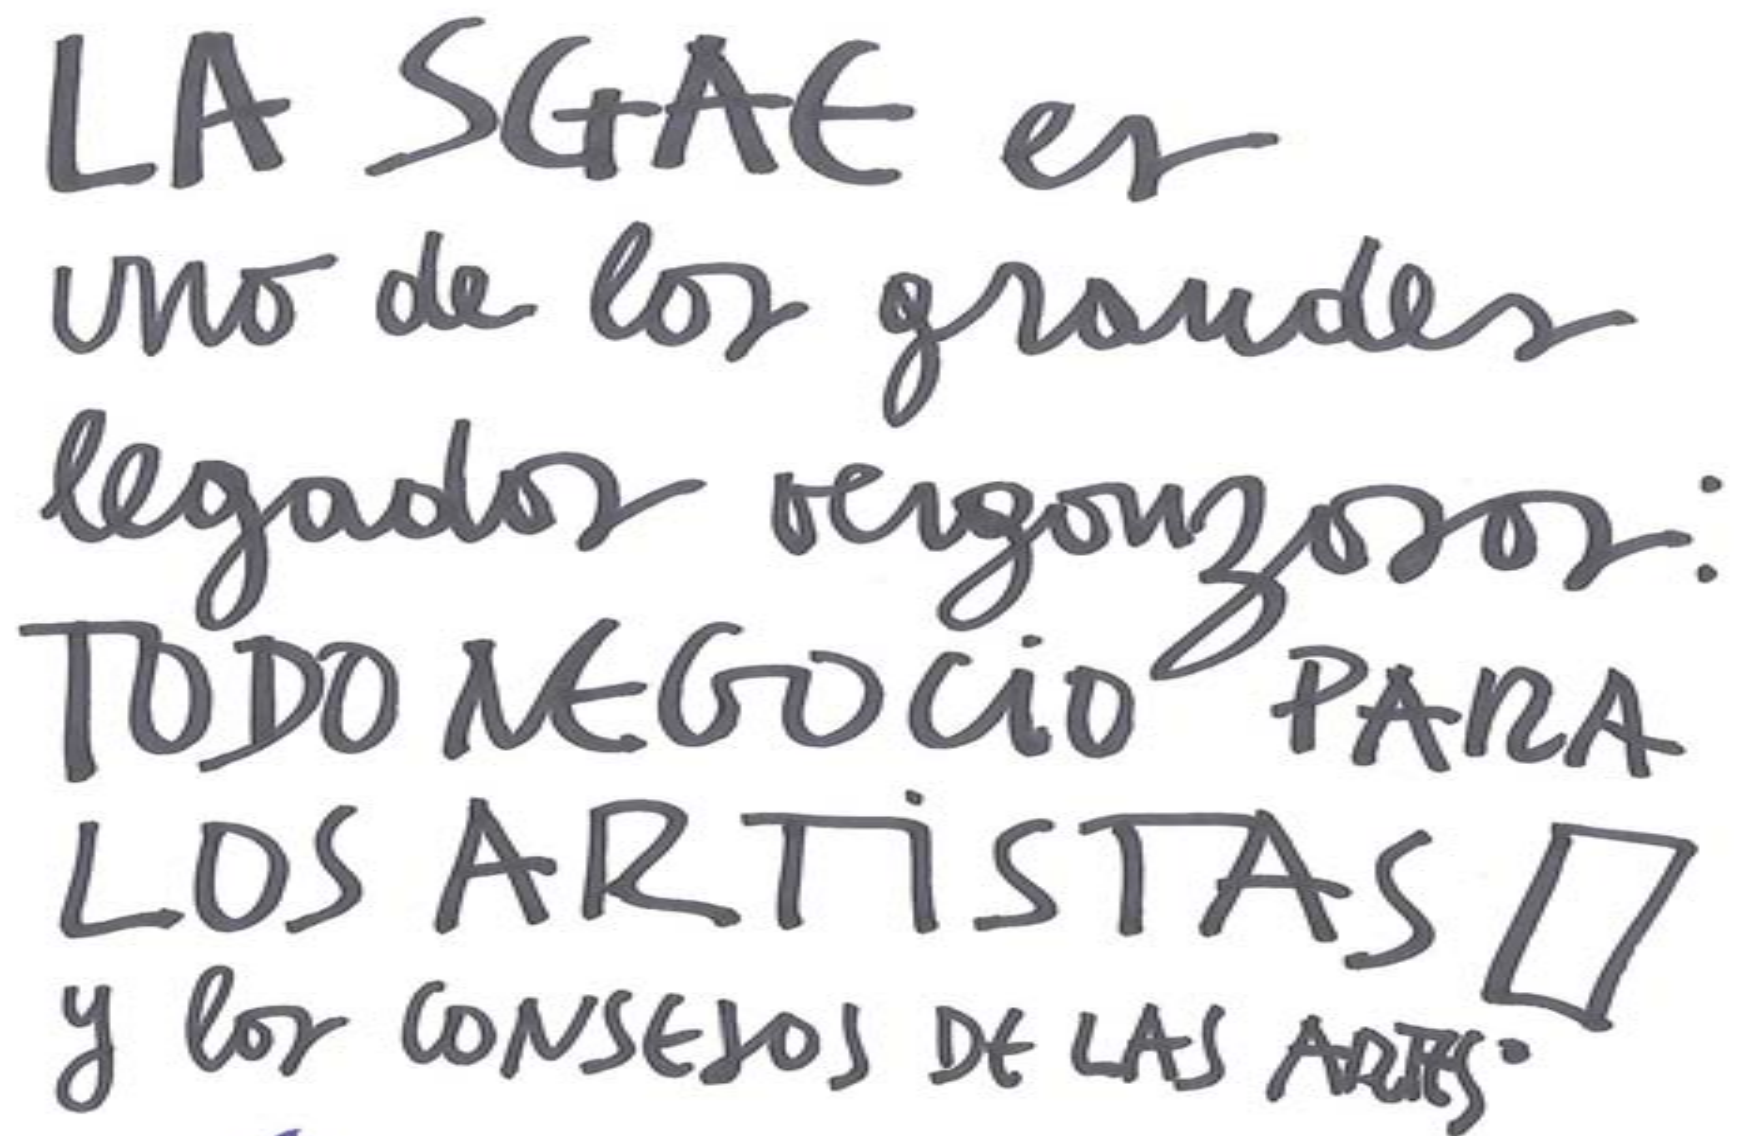 LA SGAE es
uno de los grandes
legados vergonzosos:
TODO NEGOCiO PARA
LOS ARTiSTAS
y los CONSEJOS DE LAS ARTES.